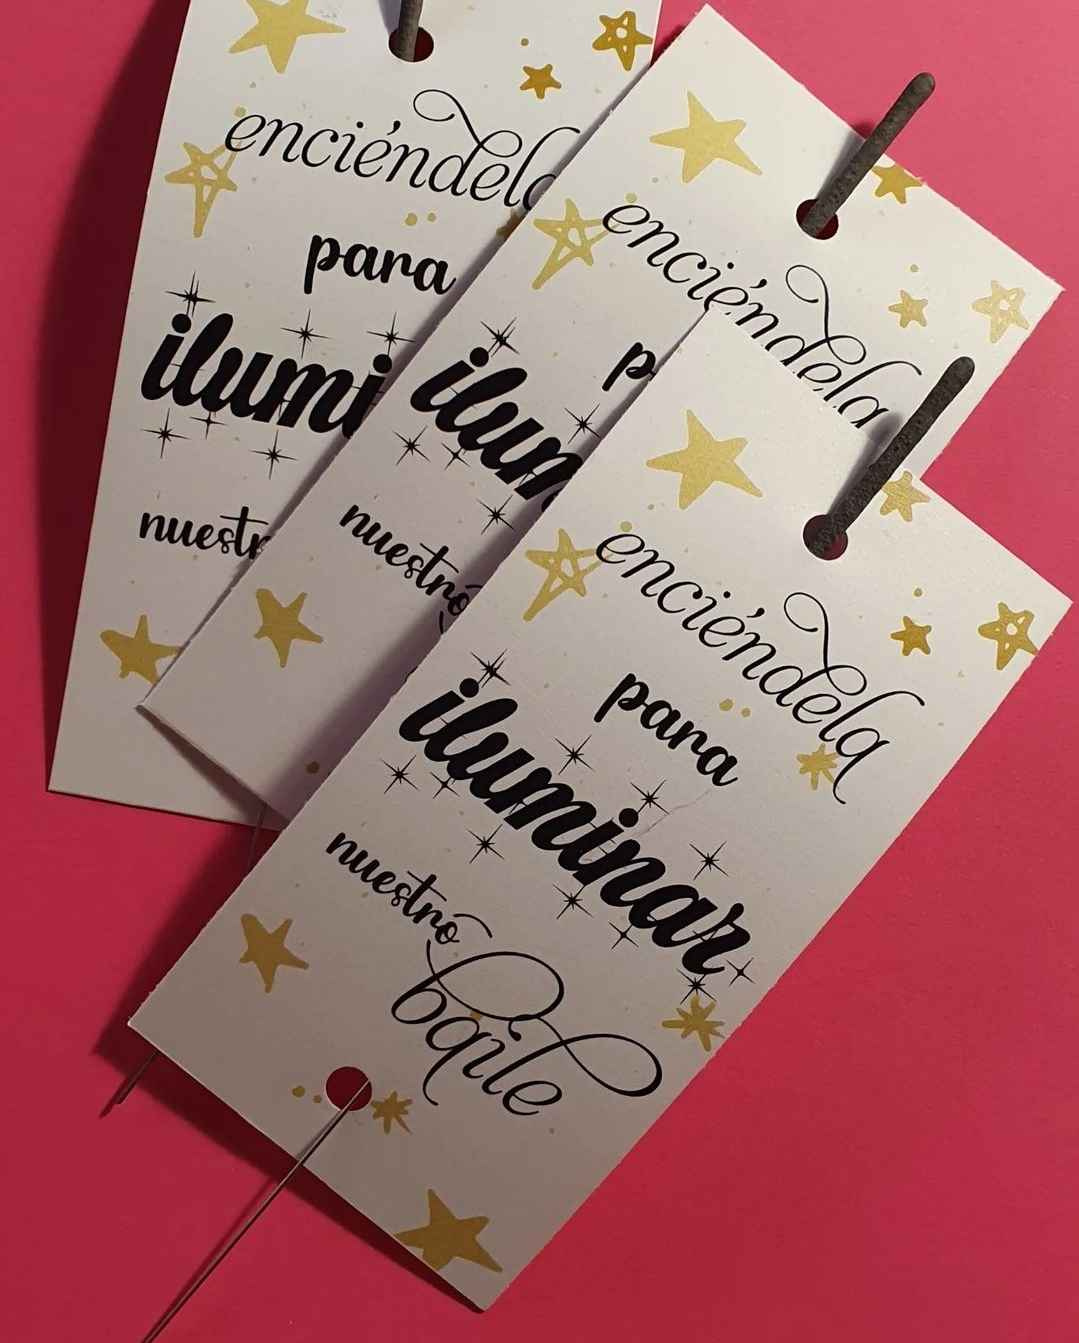 enciéndela
para
ilumi
nuestr
enciéndela
p
ilum
nuestro
enciéndela
para
iluminar
nuestro
baile